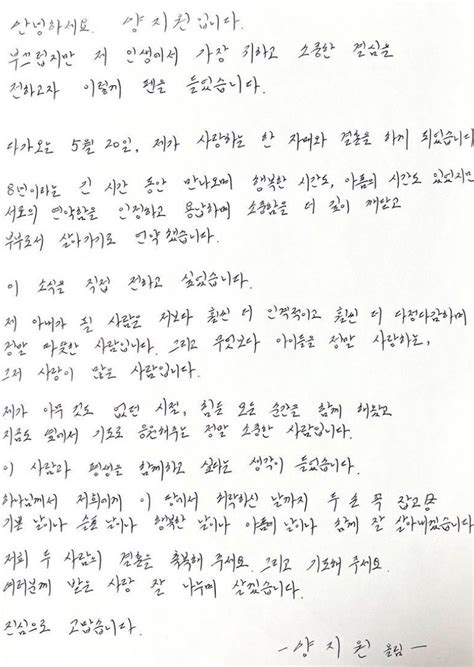 안녕하세요. 양지원입니다.
부끄럽지만 제 인생에서 가장 귀하고 소중한 결심을
전하고자 이렇게 펜을 들었습니다.
다가오는 5월 20일, 제가 사랑하는 한 자매와 결혼을 하게 되었습니다
8년이라는 긴 시간 동안 만나오며 행복한 시간도, 아픔의 시간도 있었지만
서로의 연약함을 인정하고 용납하며 소중함을 더 깊이 깨닫고
부부로서 살아가기로 언약했습니다.
이 소식을 직접 전하고 싶었습니다.
제 아내가 될 사람은 저보다 훨씬 더 인격적이고 훨씬 더 다정다감하며
정말 따뜻한 사람입니다. 그리고 무엇보다 아이들을 정말 사랑하는,
그저 사랑이 많은 사람입니다.
제가 아무 것도 없던 시절, 힘든 모든 순간을 함께 해왔고
지금도 옆에서 기도로 응원해주는 정말 소중한 사람입니다.
이 사람과 평생을 함께하고 싶다는 생각이 들었습니다.
하나님께서 저희에게 이 땅에서 허락하신 날까지 두 손 꼭 잡고
기쁜 날이나 슬픈 날이나 행복한 날이나 아픔의 날이나 함께 잘 살아내겠습니다
저희 두 사람의 결혼을 축복해 주세요. 그리고 기도해 주세요.
여러분께 받은 사랑 잘 나누며 살겠습니다.
진심으로 고맙습니다.
- 양지원 올림 -